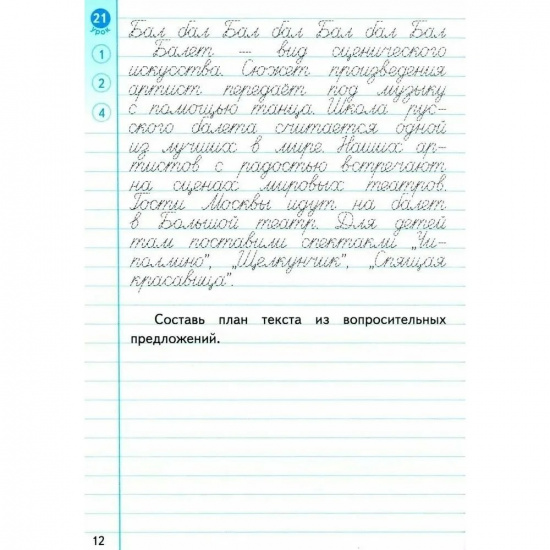 21
Урок
Бал бал Бал бал Бал бал Бал
1
Балет — вид сценического
искусства. Сюжет произведения
2
артист передаёт под музыку
4
с помощью танца. Школа рус-
ского балета считается одной
из лучших в мире. Наших ар-
тистов с радостью встречают
на сценах мировых театров.
Гости Москвы идут на балет
в Большой театр. Для детей
там поставили спектакли „Чи-
поллино“, „Щелкунчик“, „Спящая
красавица“.
Составь план текста из вопросительных
предложений.
12